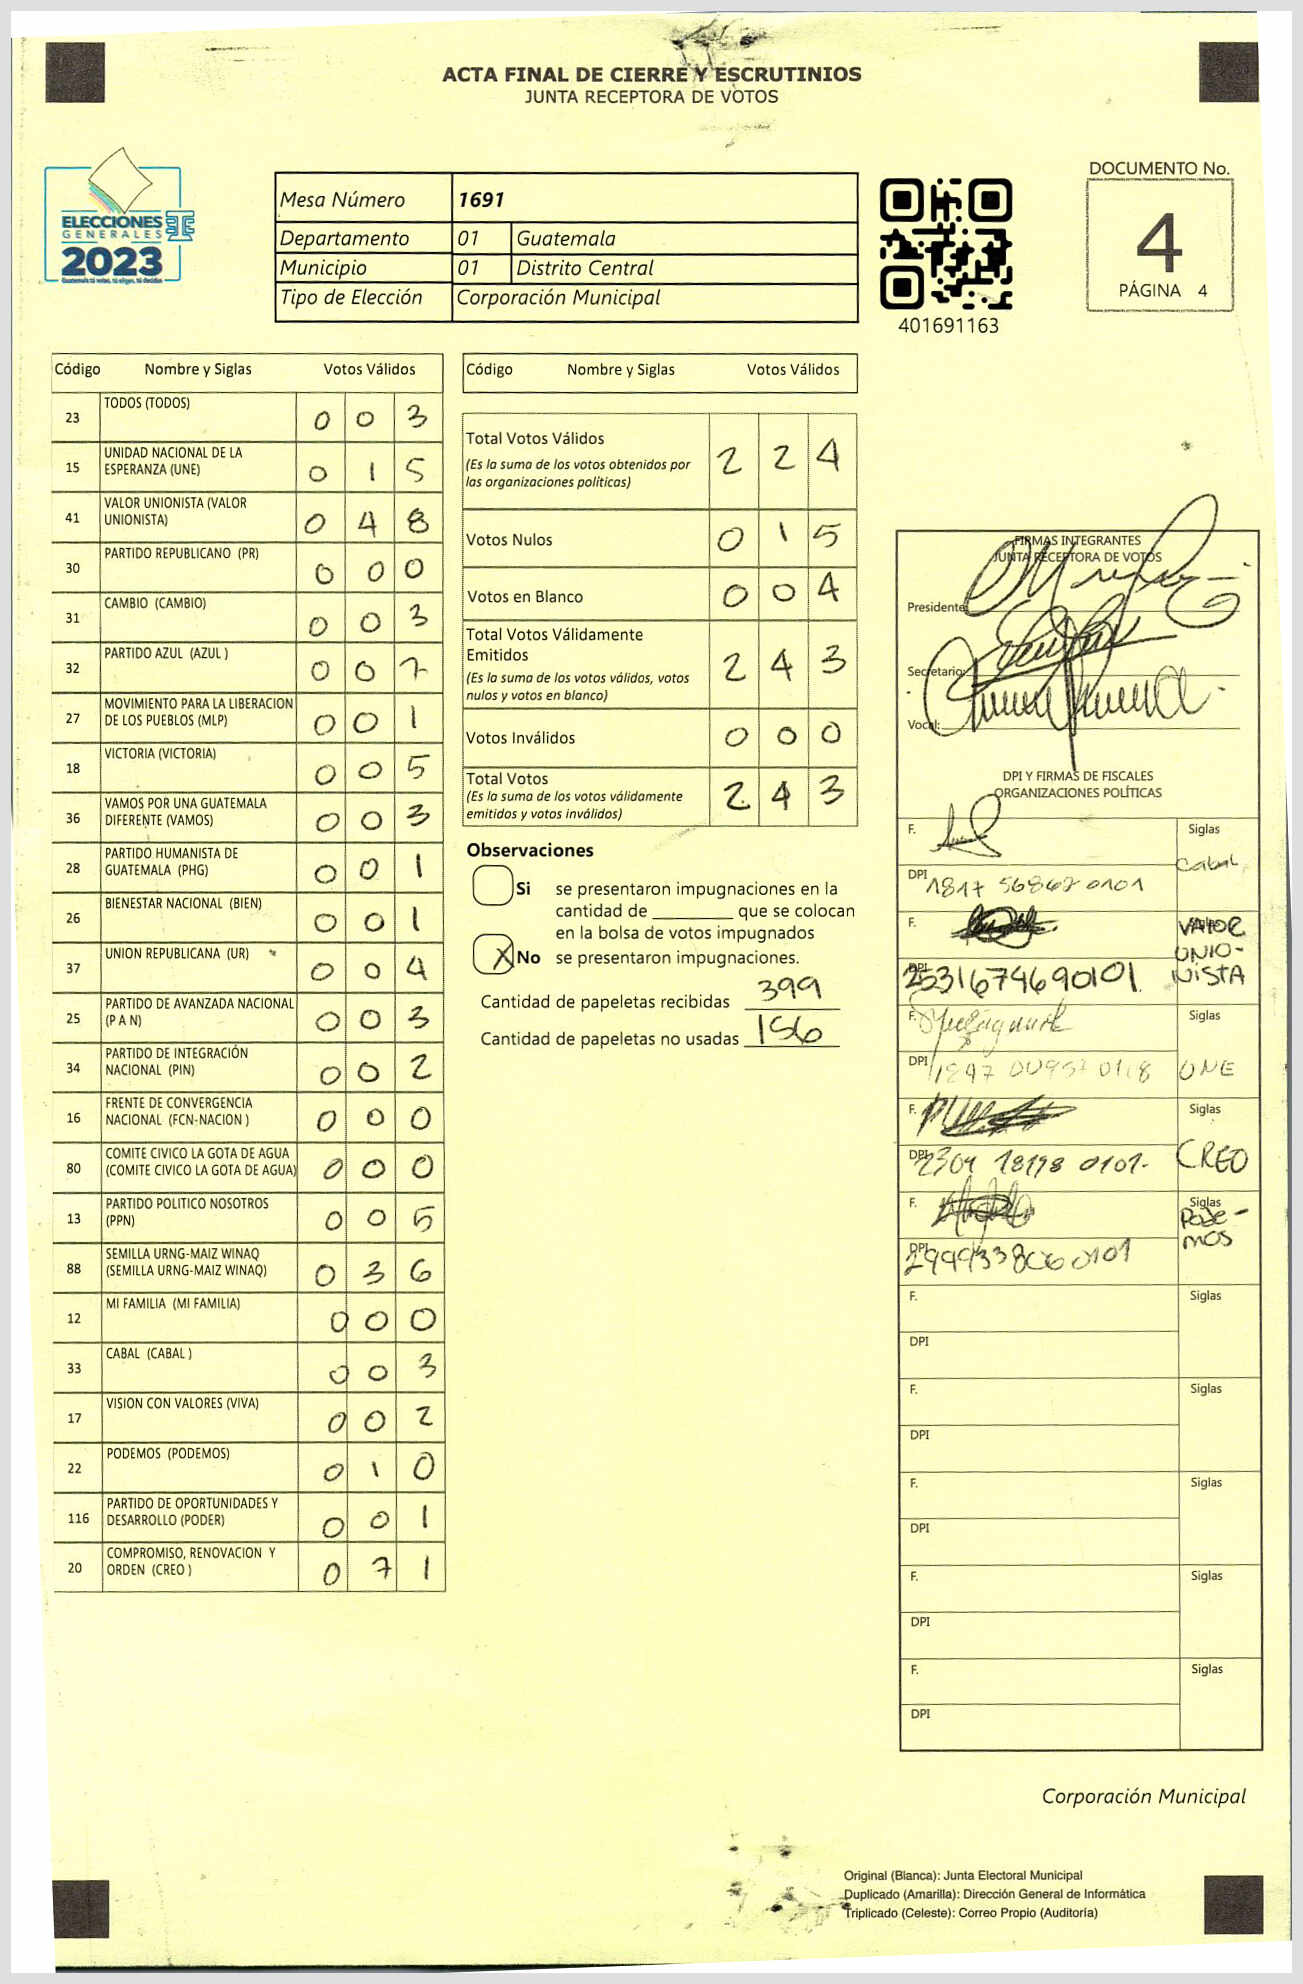 ACTA FINAL DE CIERRE Y ESCRUTINIOS
JUNTA RECEPTORA DE VOTOS
ELECCIONES
GENERALES
2023
Guatemala tú votas, tú eliges, tú decides
Mesa Número 1691
Departamento 01 Guatemala
Municipio 01 Distrito Central
Tipo de Elección Corporación Municipal
401691163
DOCUMENTO No.
4
PÁGINA 4
Código Nombre y Siglas Votos Válidos
23 TODOS (TODOS) 0 0 3
15 UNIDAD NACIONAL DE LA
ESPERANZA (UNE) 0 1 5
41 VALOR UNIONISTA (VALOR
UNIONISTA) 0 4 8
30 PARTIDO REPUBLICANO (PR) 0 0 0
31 CAMBIO (CAMBIO) 0 0 3
32 PARTIDO AZUL (AZUL ) 0 0 7
27 MOVIMIENTO PARA LA LIBERACION
DE LOS PUEBLOS (MLP) 0 0 1
18 VICTORIA (VICTORIA) 0 0 5
36 VAMOS POR UNA GUATEMALA
DIFERENTE (VAMOS) 0 0 3
28 PARTIDO HUMANISTA DE
GUATEMALA (PHG) 0 0 1
26 BIENESTAR NACIONAL (BIEN) 0 0 1
37 UNION REPUBLICANA (UR) 0 0 4
25 PARTIDO DE AVANZADA NACIONAL
(P A N) 0 0 3
34 PARTIDO DE INTEGRACIÓN
NACIONAL (PIN) 0 0 2
16 FRENTE DE CONVERGENCIA
NACIONAL (FCN-NACION ) 0 0 0
80 COMITE CIVICO LA GOTA DE AGUA
(COMITE CIVICO LA GOTA DE AGUA) 0 0 0
13 PARTIDO POLITICO NOSOTROS
(PPN) 0 0 5
88 SEMILLA URNG-MAIZ WINAQ
(SEMILLA URNG-MAIZ WINAQ) 0 3 6
12 MI FAMILIA (MI FAMILIA) 0 0 0
33 CABAL (CABAL ) 0 0 3
17 VISION CON VALORES (VIVA) 0 0 2
22 PODEMOS (PODEMOS) 0 1 0
116 PARTIDO DE OPORTUNIDADES Y
DESARROLLO (PODER) 0 0 1
20 COMPROMISO, RENOVACION Y
ORDEN (CREO ) 0 7 1
Código Nombre y Siglas Votos Válidos
Total Votos Válidos 2 2 4
(Es la suma de los votos obtenidos por
las organizaciones políticas)
Votos Nulos 0 1 5
Votos en Blanco 0 0 4
Total Votos Válidamente
Emitidos 2 4 3
(Es la suma de los votos válidos, votos
nulos y votos en blanco)
Votos Inválidos 0 0 0
Total Votos 2 4 3
(Es la suma de los votos válidamente
emitidos y votos inválidos)
Observaciones
Si se presentaron impugnaciones en la
cantidad de ________ que se colocan
en la bolsa de votos impugnados
X No se presentaron impugnaciones.
Cantidad de papeletas recibidas 399
Cantidad de papeletas no usadas 156
FIRMAS INTEGRANTES
JUNTA RECEPTORA DE VOTOS
Presidente:
Secretario:
Vocal:
DPI Y FIRMAS DE FISCALES
ORGANIZACIONES POLÍTICAS
F. Siglas
Cabal
DPI 1817 56862 0101
F. Siglas
VALOR
UNIO-
NISTA
DPI 2531674690101
F. Siglas
UNE
DPI
F. Siglas
CREO
DPI 2304 18198 0101-
F. Siglas
Pode-
mos
DPI 2999338060101
F. Siglas
DPI
F. Siglas
DPI
F. Siglas
DPI
F. Siglas
DPI
F. Siglas
DPI
Corporación Municipal
Original (Blanca): Junta Electoral Municipal
Duplicado (Amarilla): Dirección General de Informática
Triplicado (Celeste): Correo Propio (Auditoría)